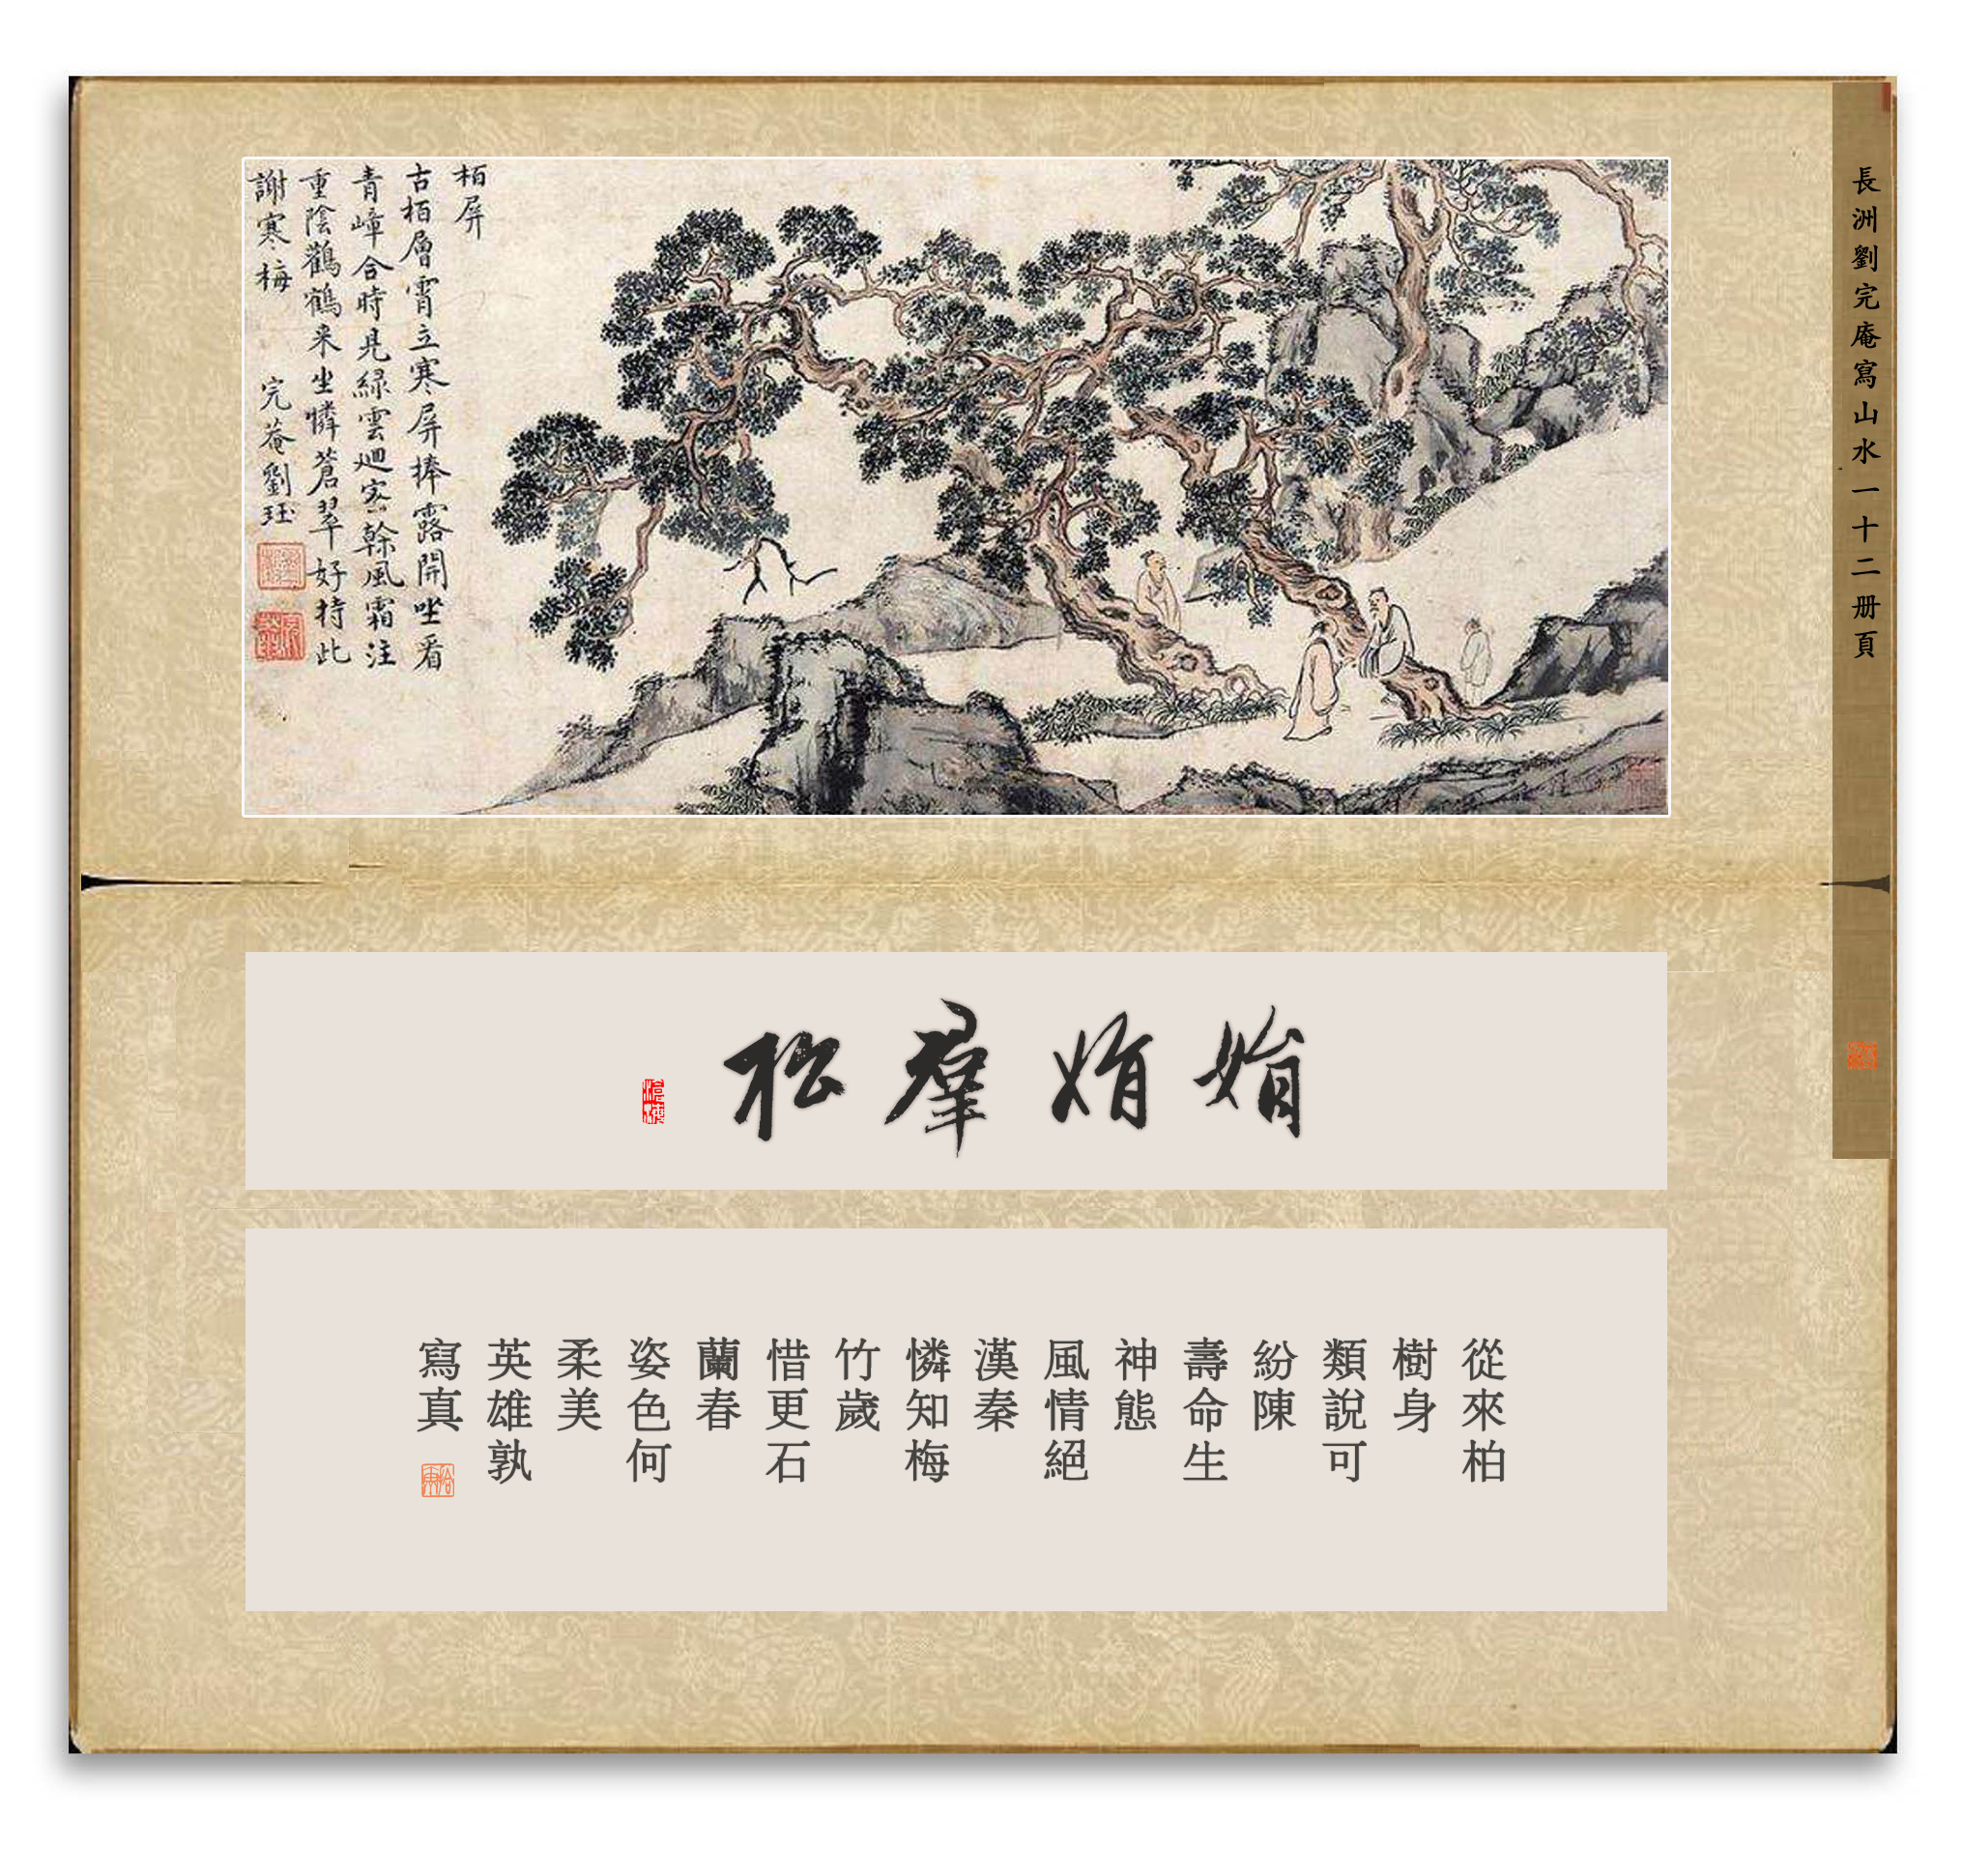 長洲劉完庵寫山水一十二册頁
栢屏
古栢層霄立寒屏捧露開坐看
青嶂合時見緑雲廻密幹風霜注
重陰鸛鶴来坐憐蒼翠好持此
謝寒梅 完菴劉珏
羣松
從來柏
樹身
類説可
紛陳
壽命生
神態
風情絕
漢秦
憐知梅
竹歲
惜更石
蘭春
姿色何
柔美
英雄孰
寫真